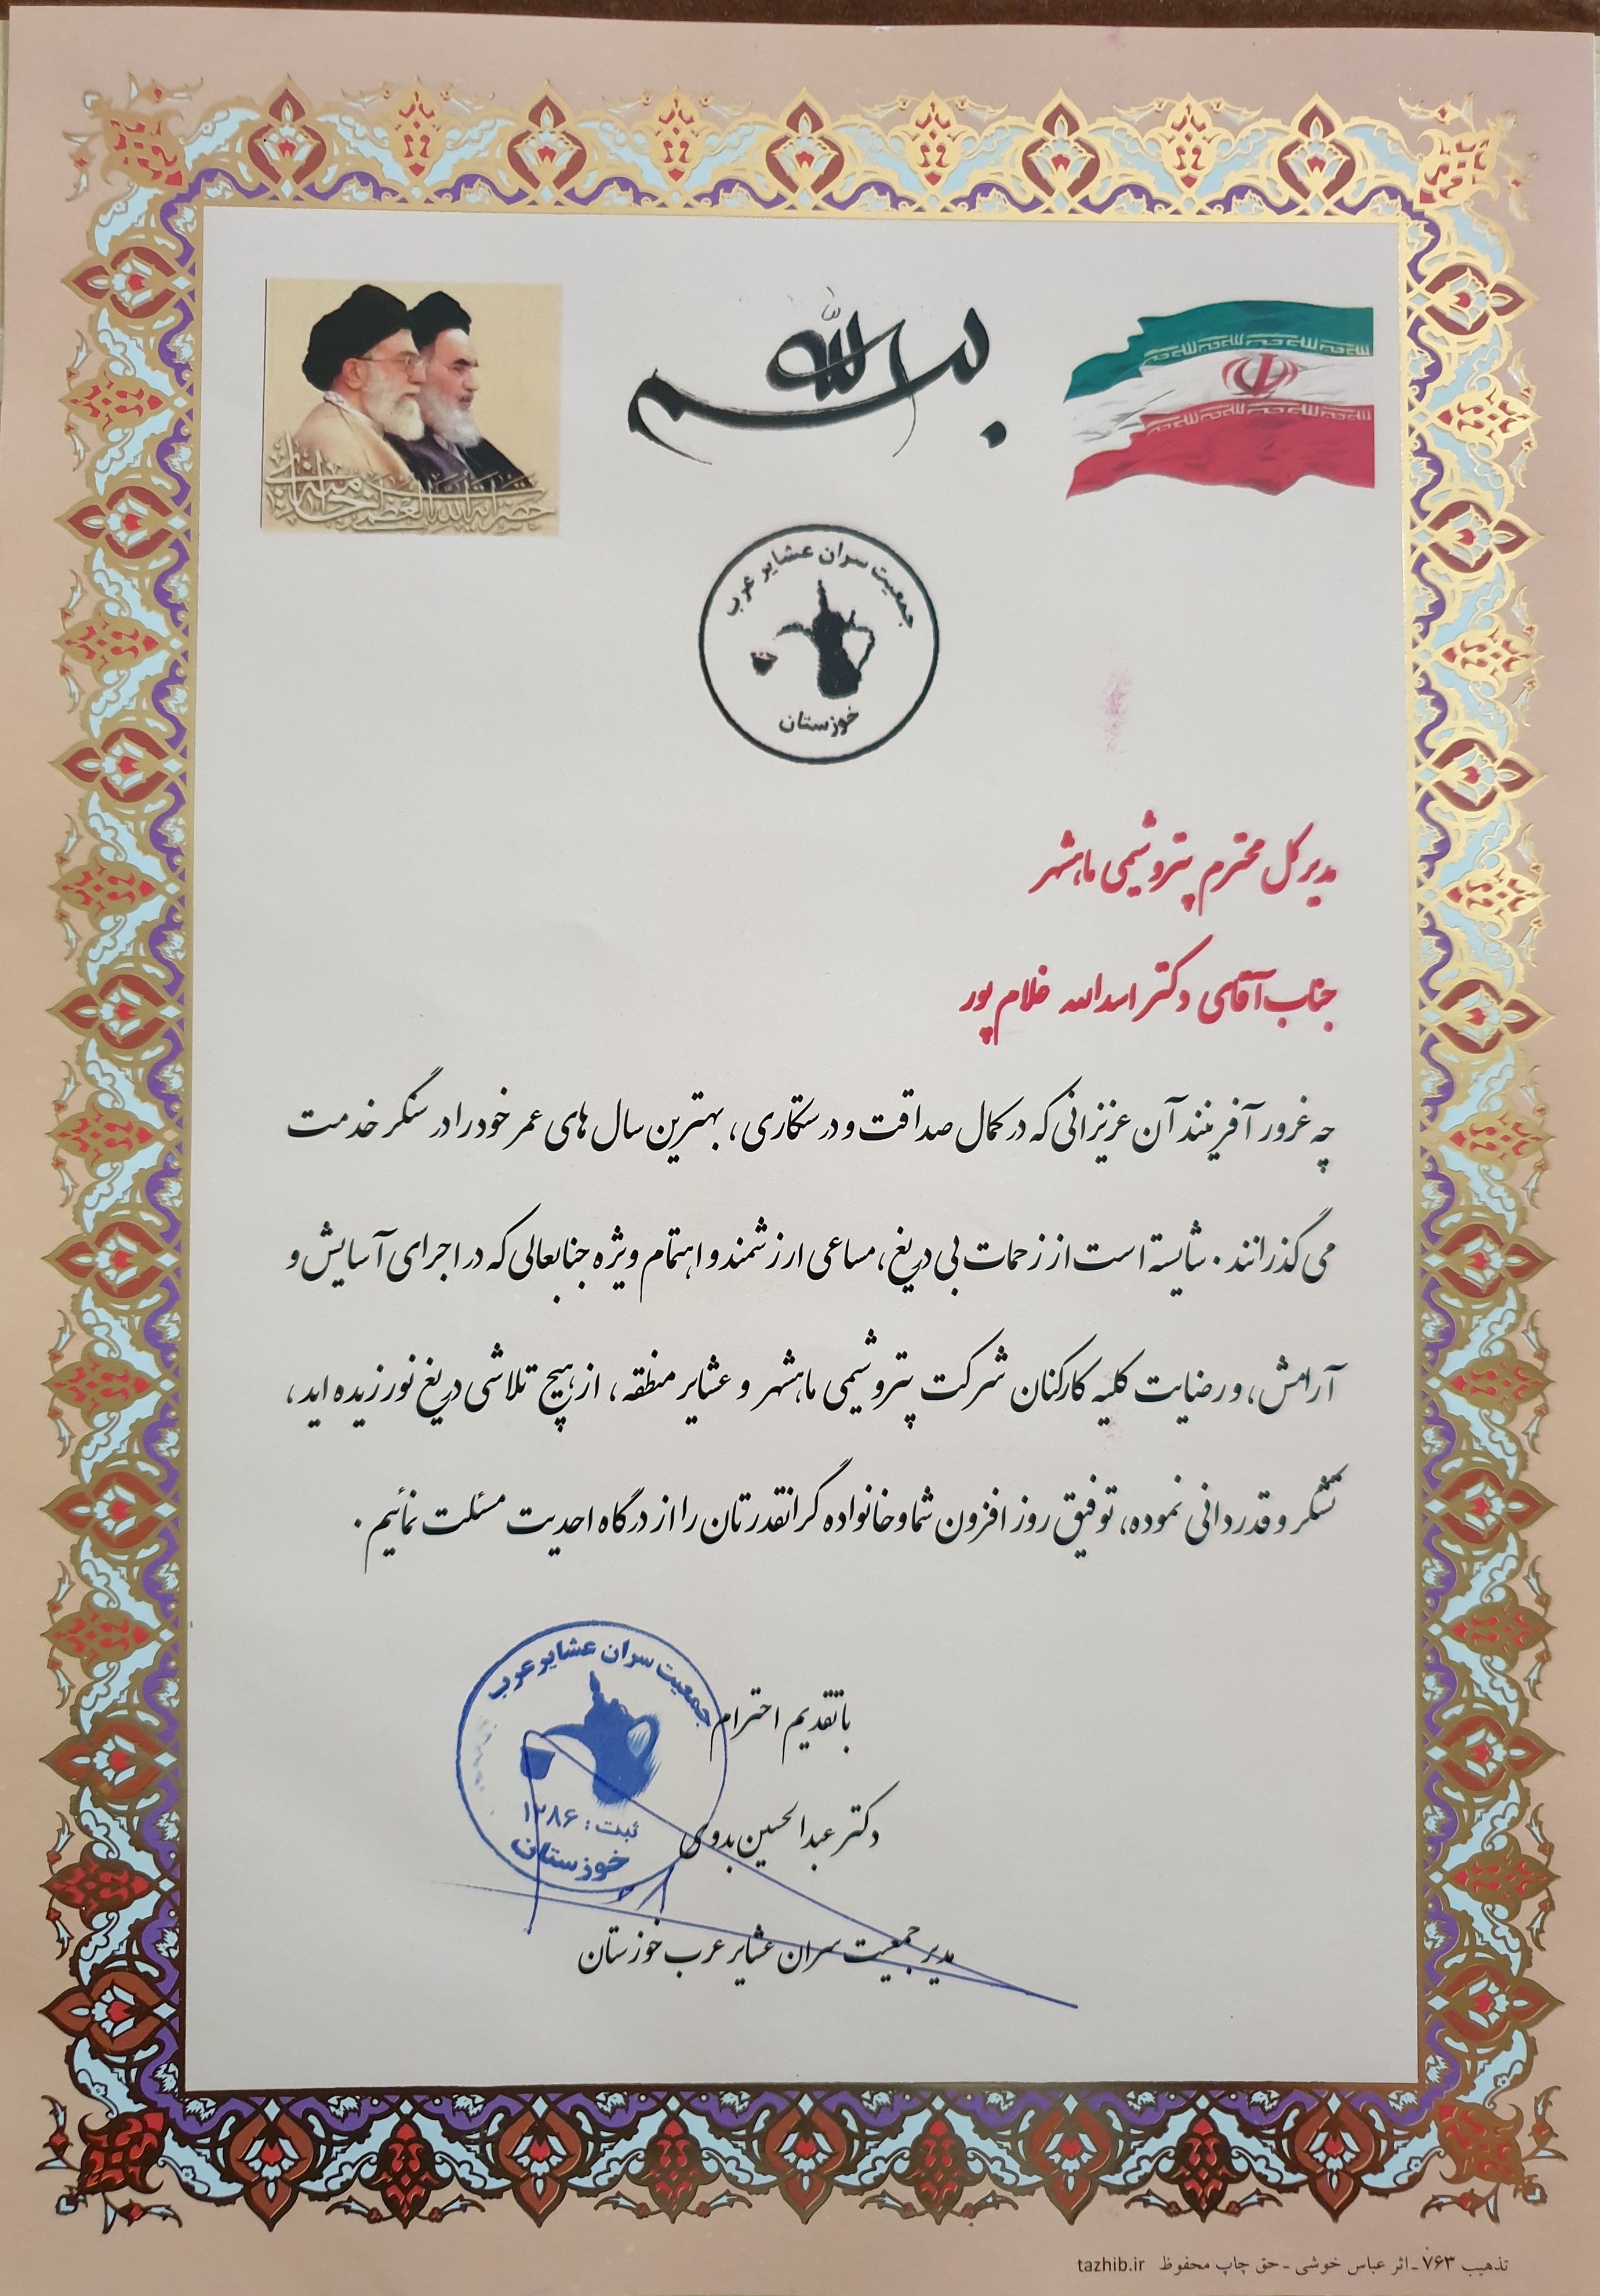 بسم الله
حضرت آیة الله العظمی خامنه‌ای
جمعیت سران عشایر عرب
خوزستان
مدیر کل محترم پتروشیمی ماهشهر
جناب آقای دکتر اسدالله غلام پور
چه غرور آفرینند آن عزیزانی که در کمال صداقت و درستکاری، بهترین سال های عمر خود را در سنگر خدمت
می گذرانند. شایسته است از زحمات بی دریغ، مساعی ارزشمند و اهتمام ویژه جنابعالی که در اجرای آسایش و
آرامش، و رضایت کلیه کارکنان شرکت پتروشیمی ماهشهر و عشایر منطقه، از هیچ تلاشی دریغ نورزیده اید،
تشکر و قدردانی نموده، توفیق روز افزون شما و خانواده گرانقدرتان را از درگاه احدیت مسئلت نمائیم.
با تقدیم احترام
جمعیت سران عشایر عرب
ثبت: ۱۲۸۶
خوزستان
دکتر عبدالحسین بدوی
مدیر جمعیت سران عشایر عرب خوزستان
تذهیب ۷۶۳ - اثر عباس خوشی - حق چاپ محفوظ tazhib.ir